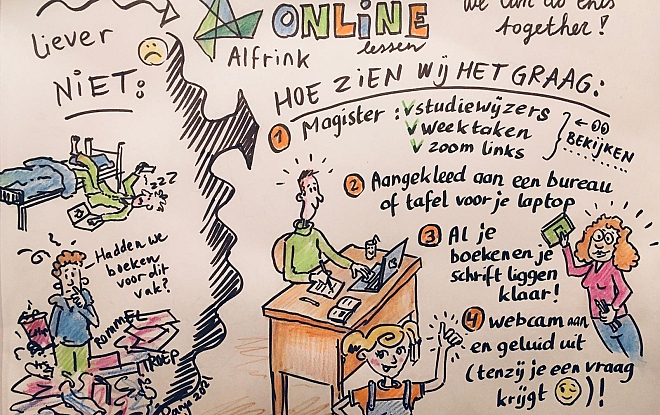 we can do this
together!
ONLINE
lessen
Alfrink
liever
NIET:
HOE ZIEN WIJ HET GRAAG:
1 Magister : studiewijzers
weektaken
zoom links
BEKIJKEN
2 Aangekleed aan een bureau
of tafel voor je laptop
3 Al je
boeken en je
schrift liggen
klaar!
4 webcam aan
en geluid uit
(tenzij je een vraag
krijgt 😉)!
zzz
Hadden we
boeken
voor dit
vak?
ROMMEL
TROEP
2021